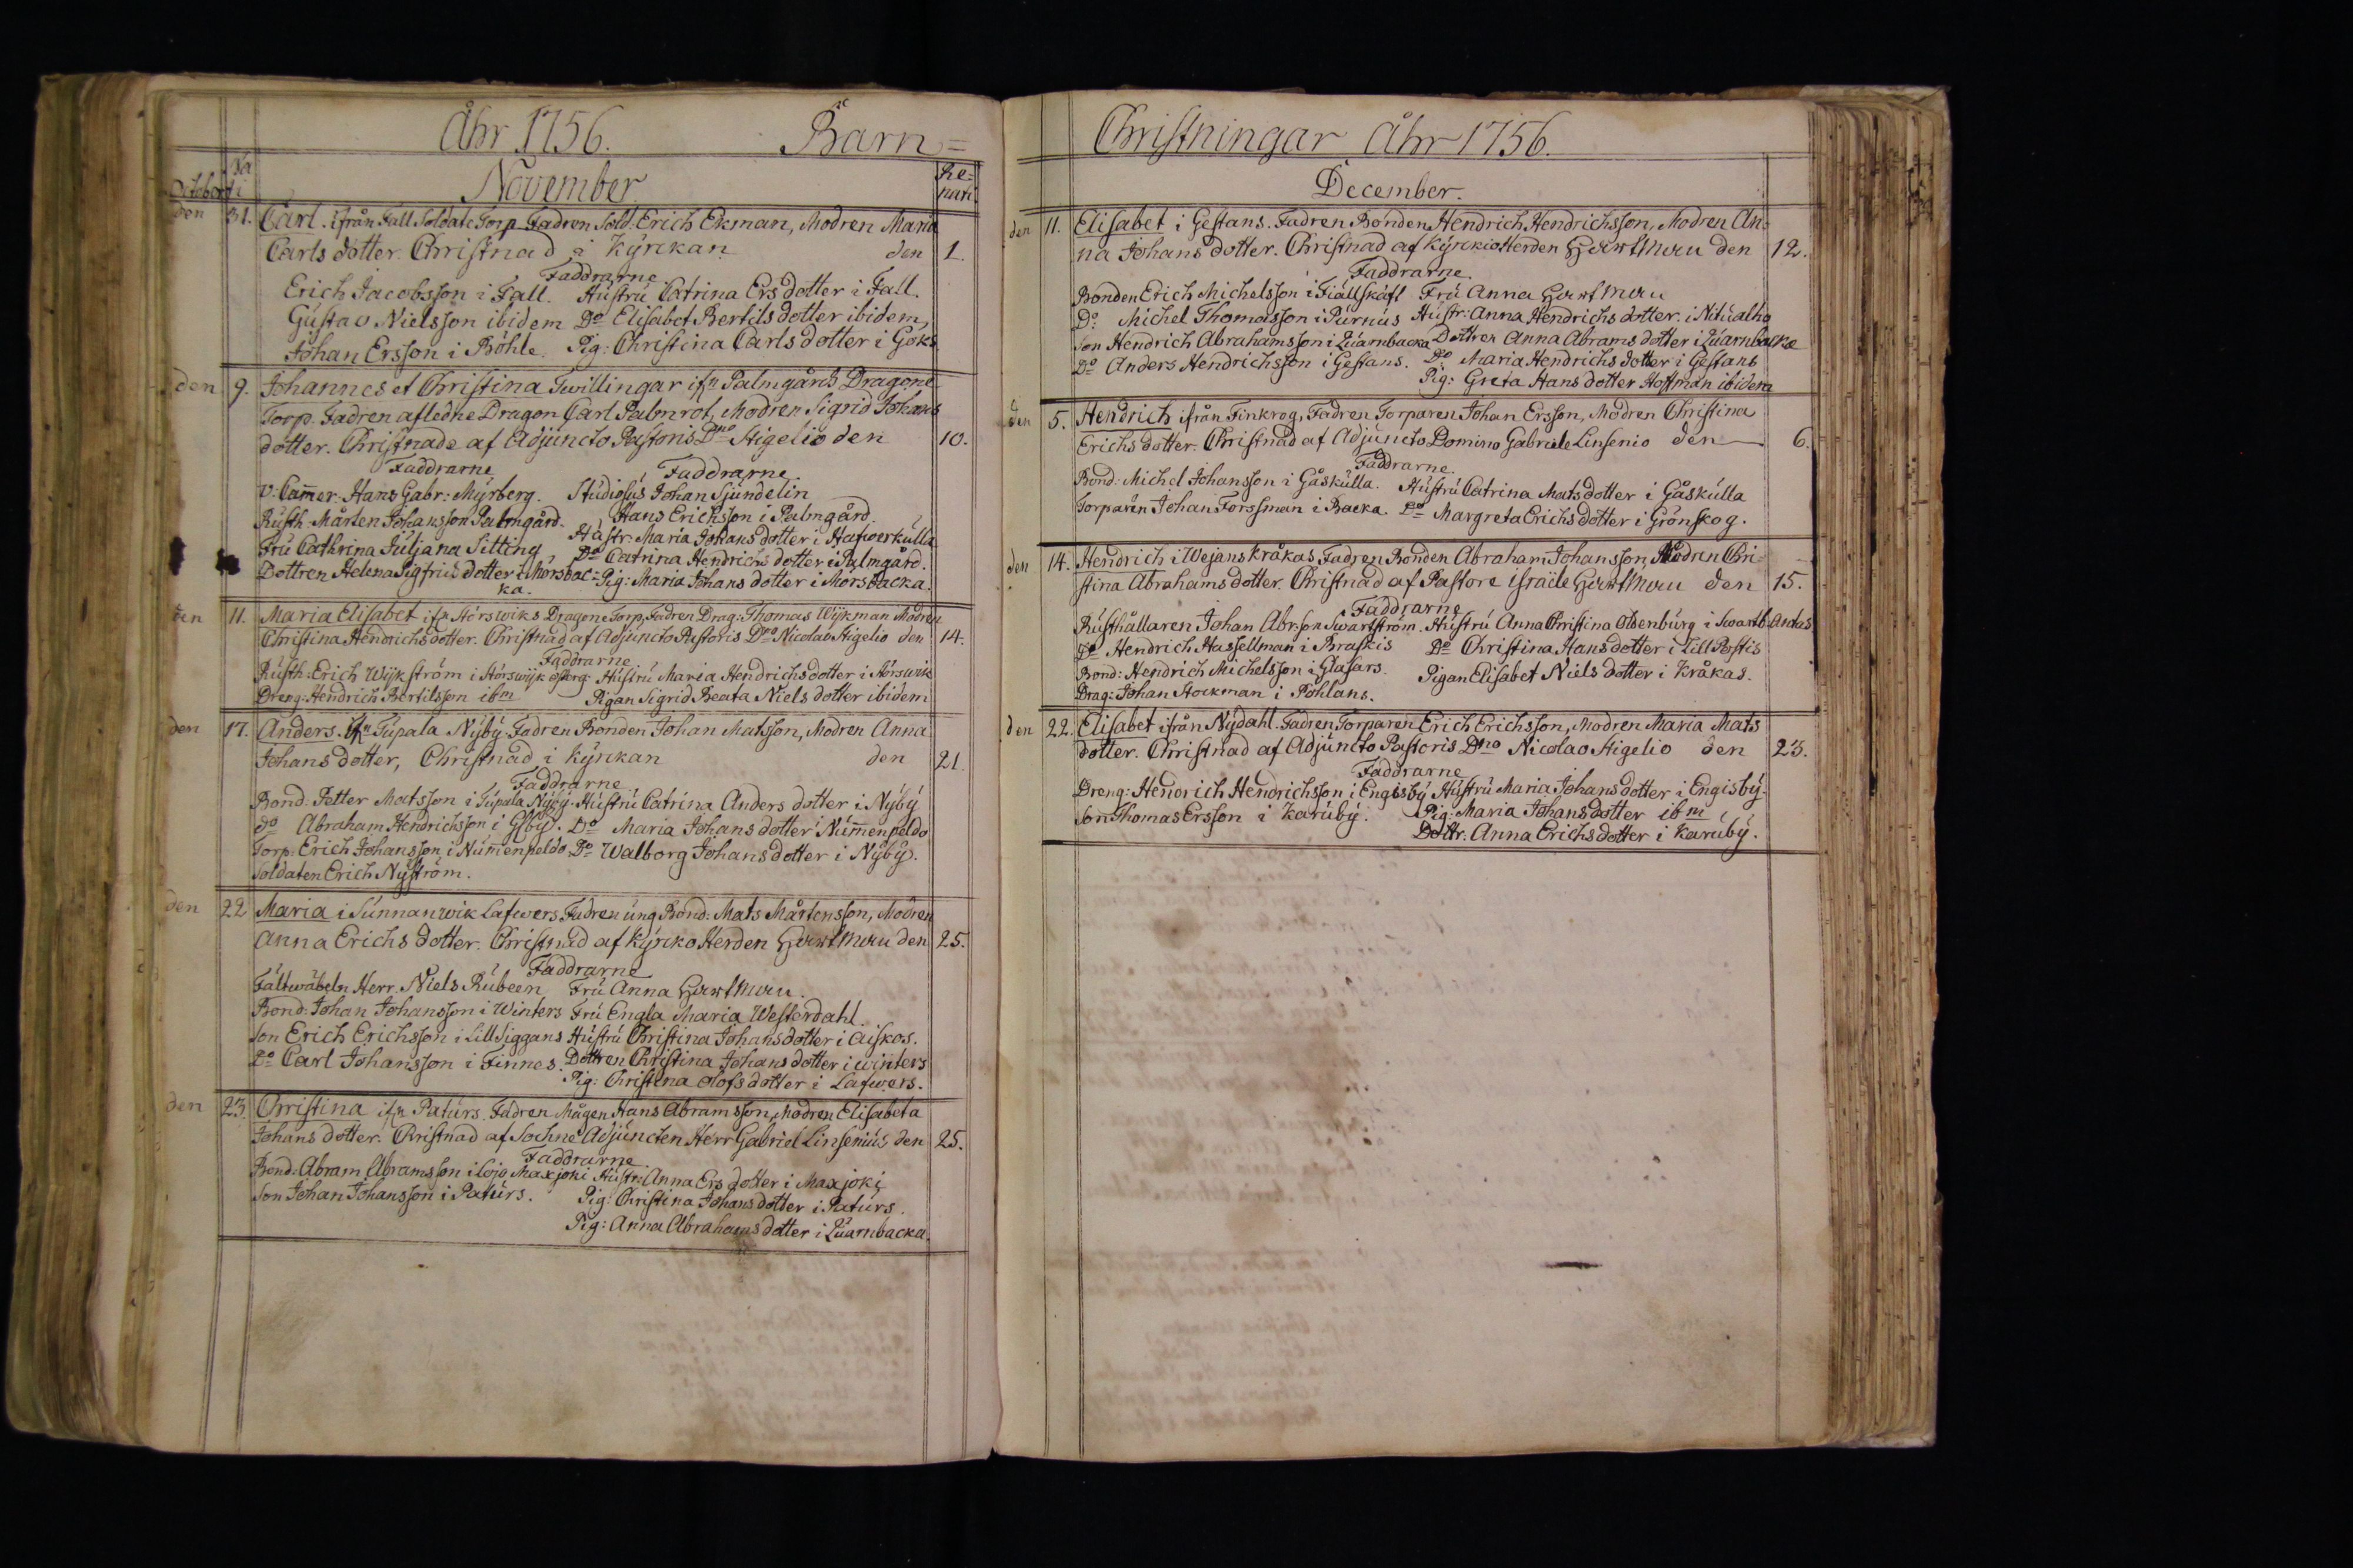 Åhr 1756. Barn=
Na
ti
Re=
nati
October
November
den 31. Carl. ifrån Fall Soldate Torp Fadren Sold: Erich Ekman, Modren Maria
Carls dotter. Christnad i Kyrckan den 1.
Faddrarne
Erich Jacobsson i Fall. Hustru Catrina Ers dotter i Fall.
Gustav Nielsson ibidem Do Elisabet Bertils dotter ibidem,
Johan Ersson i Böhle. Pig: Christina Carls dotter i Göks
den 9. Johannes et Christina Twillingar ifn Palmgårds Dragone
Torp. Fadren afledne Dragon Carl Palmrot, Modren Sigrid Johans
dotter. Christnade af Adjuncto Pastoris Dno Stigelio den 10.
Faddrarne Faddrarne
V: Camer: Hans Gabr: Myrberg. Studiosus Johan Sjundelin
Rusth: Mårten Johansson Palmgård. Hans Erichsson i Palmgård.
Fru Cathrina Juljana Sitting, Hustr: Maria Johans dotter i Hafwerkulla
Dottren Helena Sigfrids dotter i Morsbac= Do Catrina Hendrichs dotter i Palmgård.
ka. Pig: Maria Johans dotter i Morsbacka.
den 11. Maria Elisabet ifn Storswiks Dragone Torp, Fadren Drag: Thomas Wijkman Modren
Christina Hendrichs dotter. Christnad af Adjuncto Pastoris Dno Nicolao Stigelio den 14.
Faddrarne
Rusth: Erich Wijkström i Storswijk Hustru Maria Hendrichs dotter i Storswik
Dreng: Hendrich Bertilsson ibm Pigan Sigrid Beata Niels dotter ibidem
den 17. Anders. ifn Tupala Nyby Fadren Bonden Johan Matsson, Modren Anna
Johans dotter, Christnad i Kyrckan den 21.
Faddrarne
Bond: Petter Matsson i Tupala Nyby. Hustru Catrina Anders dotter i Nyby
do Abraham Hendrichsson i Glby. Do Maria Johans dotter Numenpeldo
Torp: Erich Johansson i Numenpeldo Do Walborg Johans dotter i Nyby.
Soldaten Erich Nyström.
den 22 Maria i Sunnanwik Lafwers Fadren ung Bond: Mats Mårtensson, Modren
Anna Erichs dotter. Christnad af Kyrckio Herden Hartman den 25.
Faddrarne
Fältwäbeln Herr Niels Rubeen Fru Anna Hartman.
Bond: Johan Johansson i Winters Fru Engla Maria Westerdahl.
Son Erich Erichsson i Lill Siggans Hustru Christina Johans dotter i Aiskos.
Do Carl Johansson i Finnes. Dottren Christina Johans dotter i winters
Pig: Christina Olofs dotter i Lafwers.
den 23. Christina ifn Paturs. Fadren Mågen Hans Abramsson, Modren Elisabeta
Johans dotter. Christnad af Sochne Adjuncten Herr Gabriel Linsenius den 25.
Faddrarne
Bond: Abram Abramsson i Lojo Maxjoki Hustr: Anna Ers dotter i Maxjoki
Son Johan Johansson i Paturs. Pig: Christina Johans dotter i Paturs.
Pig: Anna Abrahams dotter i Quarnbacka.
Christningar Åhr 1756.
December.
den 11. Elisabet i Gestans. Fadren Bonden Hendrich Hendrichsson, Modren An=
na Johans dotter. Christnad af Kyrckio Herden Hartman den 12.
Faddrarne.
Bonden Erich Michelsson i Fiällskäft Fru Anna Hartman
Do: Michel Thomasson i Purnus Hustr: Anna Hendrichs dotter. i Nitualho
Son Hendrich Abrahamsson i Quarnbacka Dottren Anna Abrams dotter i Quarnbacka
Do Anders Hendrichsson i Gestans. Do Maria Hendrichs dotter i Gestans
Pig: Greta Hans dotter Hoffman ibidem
den 5. Hendrich ifrån Finkrog, Fadren Torparen Johan Ersson, Modren Christina
Erichs dotter. Christnad af Adjuncto Domino Gabriele Linsenio den 6.
Faddrarne.
Bond: Michel Johansson i Gåskulla. Hustru Catrina Mats dotter i Gåskulla
Torparen Johan Forssman i Backa. Do Margreta Erichs dotter i Grönskog.
den 14. Hendrich i Wejans Kråkas, Fadren Bonden Abraham Johansson, Modren Chri=
stina Abrahams dotter. Christnad af Pastore Israële Hartman den 15.
Faddrarne
Rusthållaren Johan Abr:son Swartström. Hustru Anna Christina Oldenburg i Swartb:
Do Hendrich Hassellman i Braskis Do Christina Hans dotter i Lill Postis
Bond: Hendrich Michelsson i Glasars. Pigan Elisabet Niels dotter i Kråkas.
Drag: Johan Stockman i Pohlans.
den 22. Elisabet ifrån Nydahl. Fadren Torparen Erich Erichsson, Modren Maria Mats
dotter. Christnad af Adjuncto Pastoris Dno Nicolao Stigelio den 23.
Faddrarne
Dreng: Hendrich Hendrichsson i Engisby Hustru Maria Johans dotter i Engisby.
Son Thomas Ersson i Karuby. Pig: Maria Johans dotter ibm
Dottr: Anna Erichs dotter i Karuby.